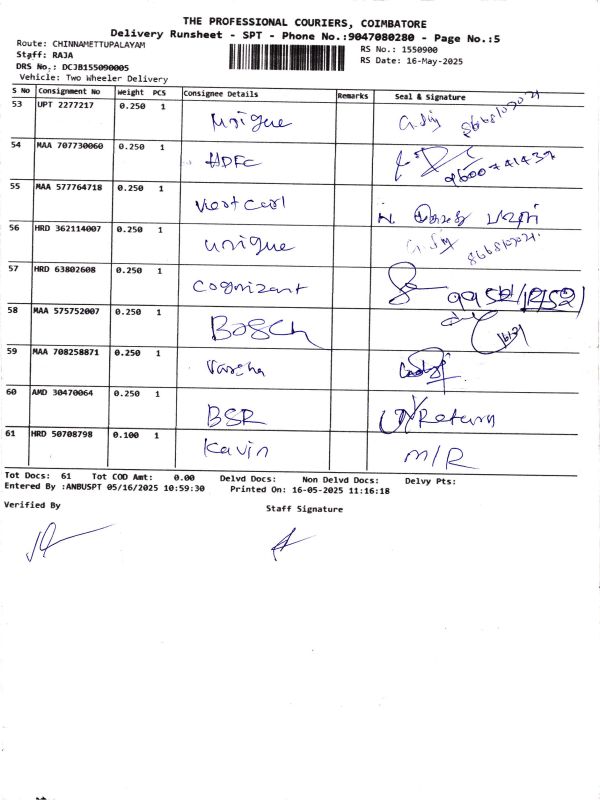 THE PROFESSIONAL COURIERS, COIMBATORE
Delivery Runsheet - SPT - Phone No.:9047080280 - Page No.:5
Route: CHINNAMETTUPALAYAM
RS No.: 1550900
Staff: RAJA
RS Date: 16-May-2025
DRS No,: DCJB155090005
Vehicle: Two Wheeler Delivery
S No Consignment No Weight PCS Consignee Details Remarks Seal & Signature
53 UPT 2277217 0.250 1 unique
54 MAA 707730060 0.250 1 HDFC
55 MAA 577764718 0.250 1
56 HRD 362114007 0.250 1 unique
57 HRD 63802608 0.250 1 Cognizant
58 MAA 575752007 0.250 1 Bosch
59 MAA 708258871 0.250 1 Varsha
60 AMD 30470064 0.250 1 BSR Return
61 HRD 50708798 0.100 1 Kavin M/R
Tot Docs: 61 Tot COD Amt: 0.00 Delvd Docs: Non Delvd Docs: Delvy Pts:
Entered By :ANBUSPT 05/16/2025 10:59:30 Printed On: 16-05-2025 11:16:18
Verified By Staff Signature